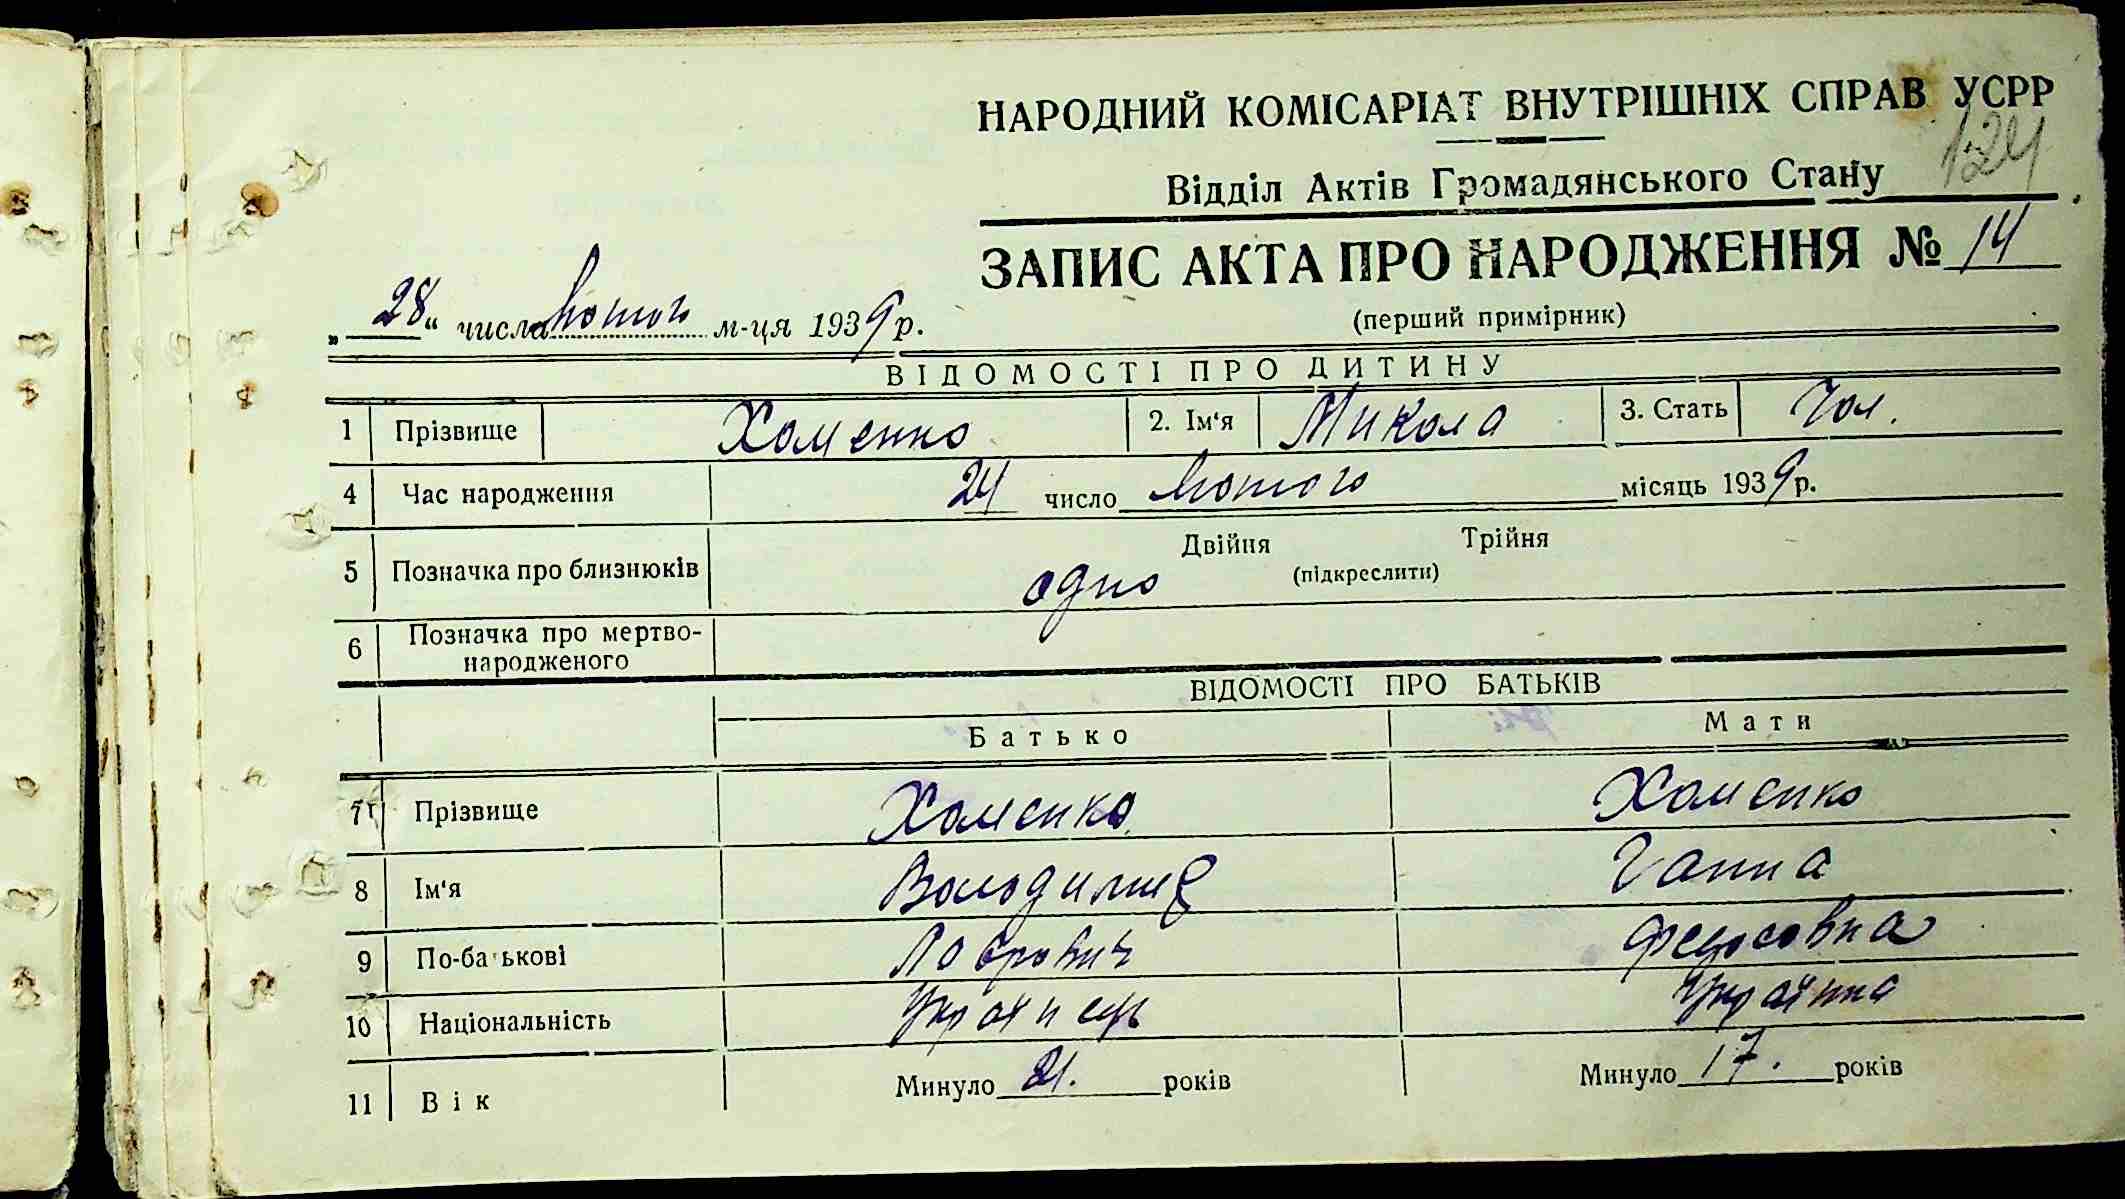 НАРОДНИЙ КОМІСАРІАТ ВНУТРІШНІХ СПРАВ УСРР
124
Відділ Актів Громадянського Стану
ЗАПИС АКТА ПРО НАРОДЖЕННЯ № 14
„28“ числа лютого м-ця 1939 р.
(перший примірник)
ВІДОМОСТІ ПРО ДИТИНУ
1 Прізвище Хоменко 2. Ім‘я Микола 3. Стать Чол.
4 Час народження 24 число лютого місяць 1939 р.
5 Позначка про близнюків одно Двійня Трійня
(підкреслити)
6 Позначка про мертво-
народженого
ВІДОМОСТІ ПРО БАТЬКІВ
Батько Мати
7 Прізвище Хоменко Хоменко
8 Ім‘я Володимир Ганна
9 По-батькові Федосовна
10 Національність Українець Українка
11 Вік Минуло 21. років Минуло 17. років